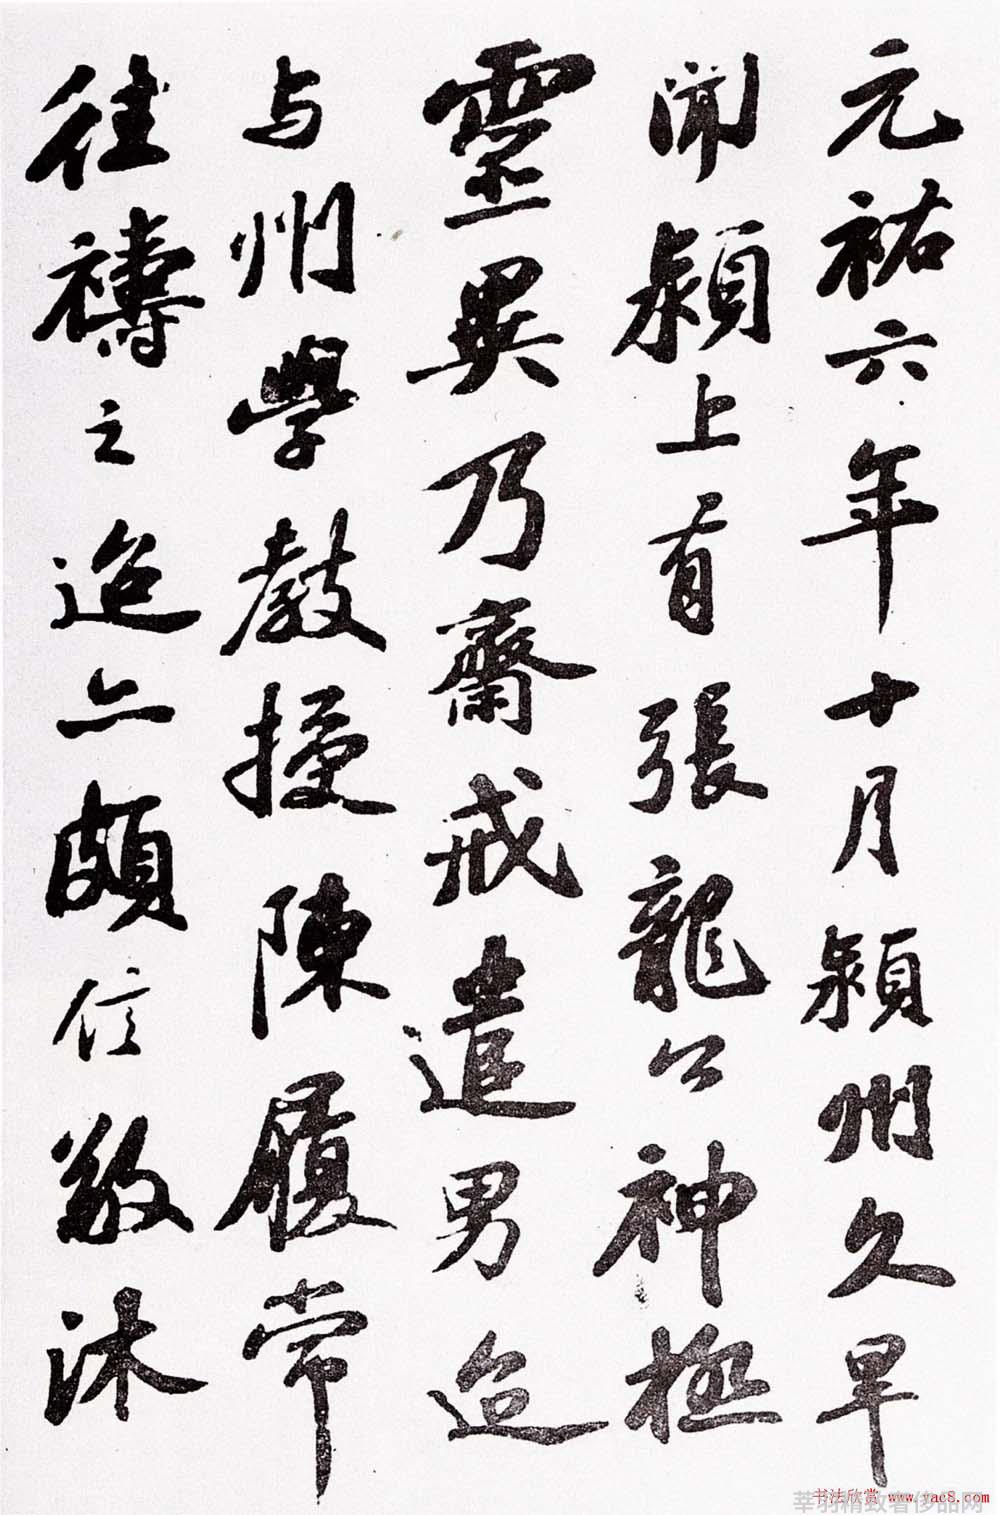 元祐六年十月潁州久旱
聞潁上有張龍公神極
靈異乃齋戒遣男迨
与州學教授陳履常
往禱之迨亦頗信敬沐
书法欣赏 www.yac8.com
莘羽精致奢侈品网